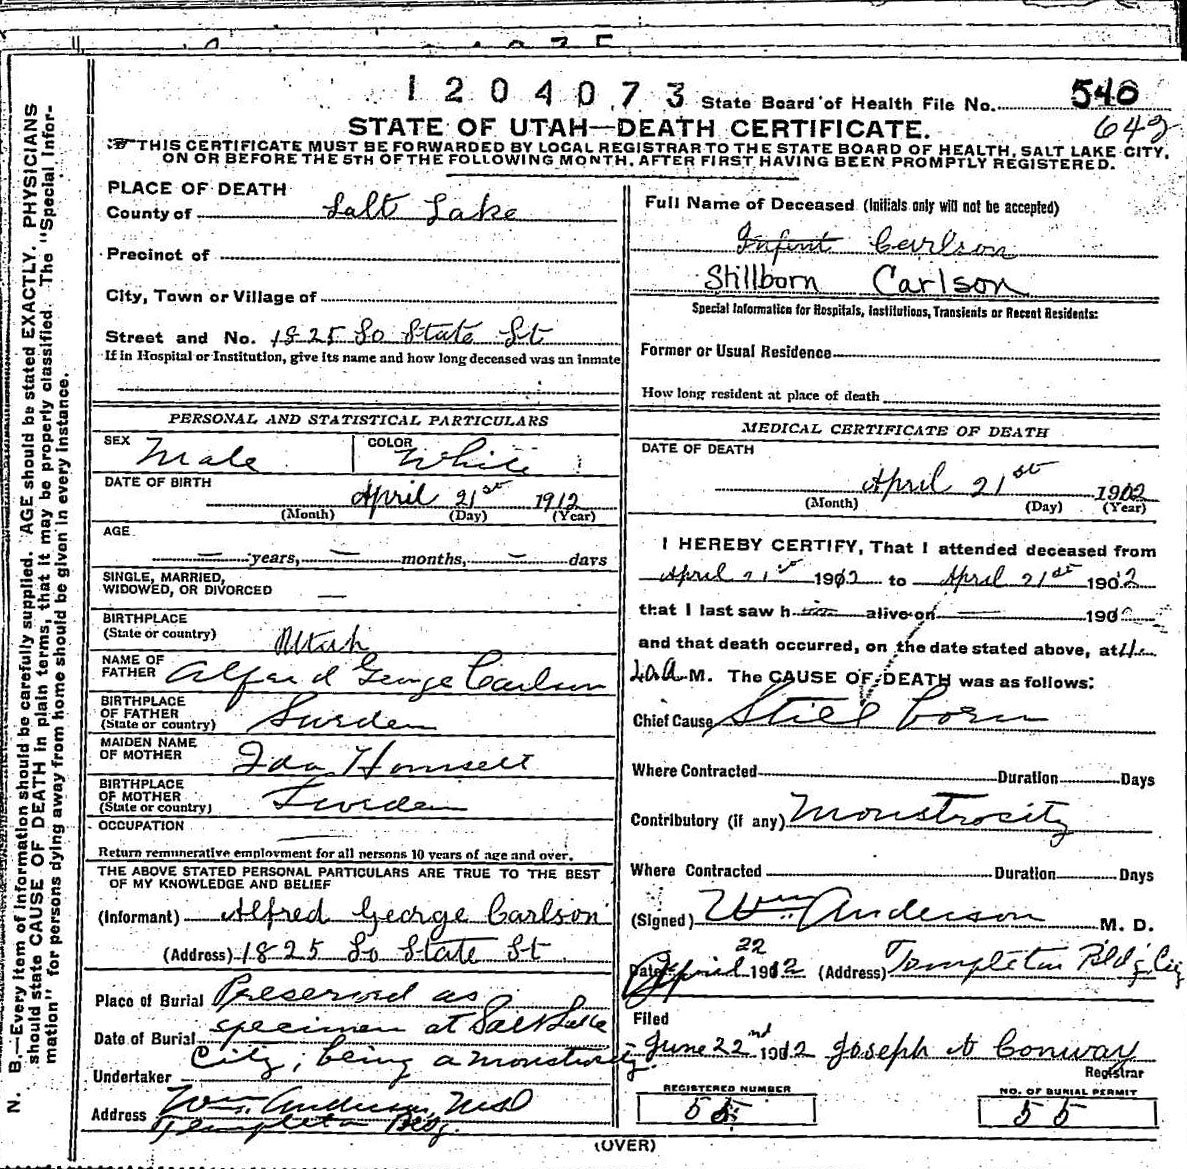 1204073 State Board of Health File No. 540
642
STATE OF UTAH—DEATH CERTIFICATE.
☞THIS CERTIFICATE MUST BE FORWARDED BY LOCAL REGISTRAR TO THE STATE BOARD OF HEALTH, SALT LAKE CITY,
ON OR BEFORE THE 5TH OF THE FOLLOWING MONTH, AFTER FIRST HAVING BEEN PROMPTLY REGISTERED.
N. B.—Every item of information should be carefully supplied. AGE should be stated EXACTLY. PHYSICIANS
should state CAUSE OF DEATH in plain terms, that it may be properly classified. The "Special Infor-
mation" for persons dying away from home should be given in every instance.
PLACE OF DEATH
County of Salt Lake
Precinct of
City, Town or Village of
Street and No. 1825 So State St
If in Hospital or Institution, give its name and how long deceased was an inmate
PERSONAL AND STATISTICAL PARTICULARS
SEX Male COLOR White
DATE OF BIRTH
April 21st 1912
(Month) (Day) (Year)
AGE
— years, — months, — days
SINGLE, MARRIED,
WIDOWED, OR DIVORCED —
BIRTHPLACE
(State or country) Utah
NAME OF
FATHER Alfred George Carlson
BIRTHPLACE
OF FATHER
(State or country) Sweden
MAIDEN NAME
OF MOTHER Ida Homsett
BIRTHPLACE
OF MOTHER
(State or country) Sweden
OCCUPATION
Return remunerative employment for all persons 10 years of age and over.
THE ABOVE STATED PERSONAL PARTICULARS ARE TRUE TO THE BEST
OF MY KNOWLEDGE AND BELIEF
(Informant) Alfred George Carlson
(Address) 1825 So State St
Place of Burial Preserved as
Date of Burial specimen at Salt Lake
City, being a monstrosity.
Undertaker
Address Wm. Anderson, M.D.
Templeton Bldg.
Full Name of Deceased (Initials only will not be accepted)
Infent Carlson
Stillborn Carlson
Special Information for Hospitals, Institutions, Transients or Recent Residents:
Former or Usual Residence
How long resident at place of death
MEDICAL CERTIFICATE OF DEATH
DATE OF DEATH
April 21st 1912
(Month) (Day) (Year)
I HEREBY CERTIFY, That I attended deceased from
April 21st 1912 to April 21st 1902
that I last saw h alive on — 190
and that death occurred, on the date stated above, at 4
A.M. The CAUSE OF DEATH was as follows:
Chief Cause Still born
Where Contracted Duration Days
Contributory (if any) Monstrosity
Where Contracted Duration Days
(Signed) Wm. Anderson M. D.
Date April 22 1912 (Address) Templeton Bldg City
Filed
June 22nd 1912 Joseph Conway
Registrar
REGISTERED NUMBER
55
NO. OF BURIAL PERMIT
55
(OVER)